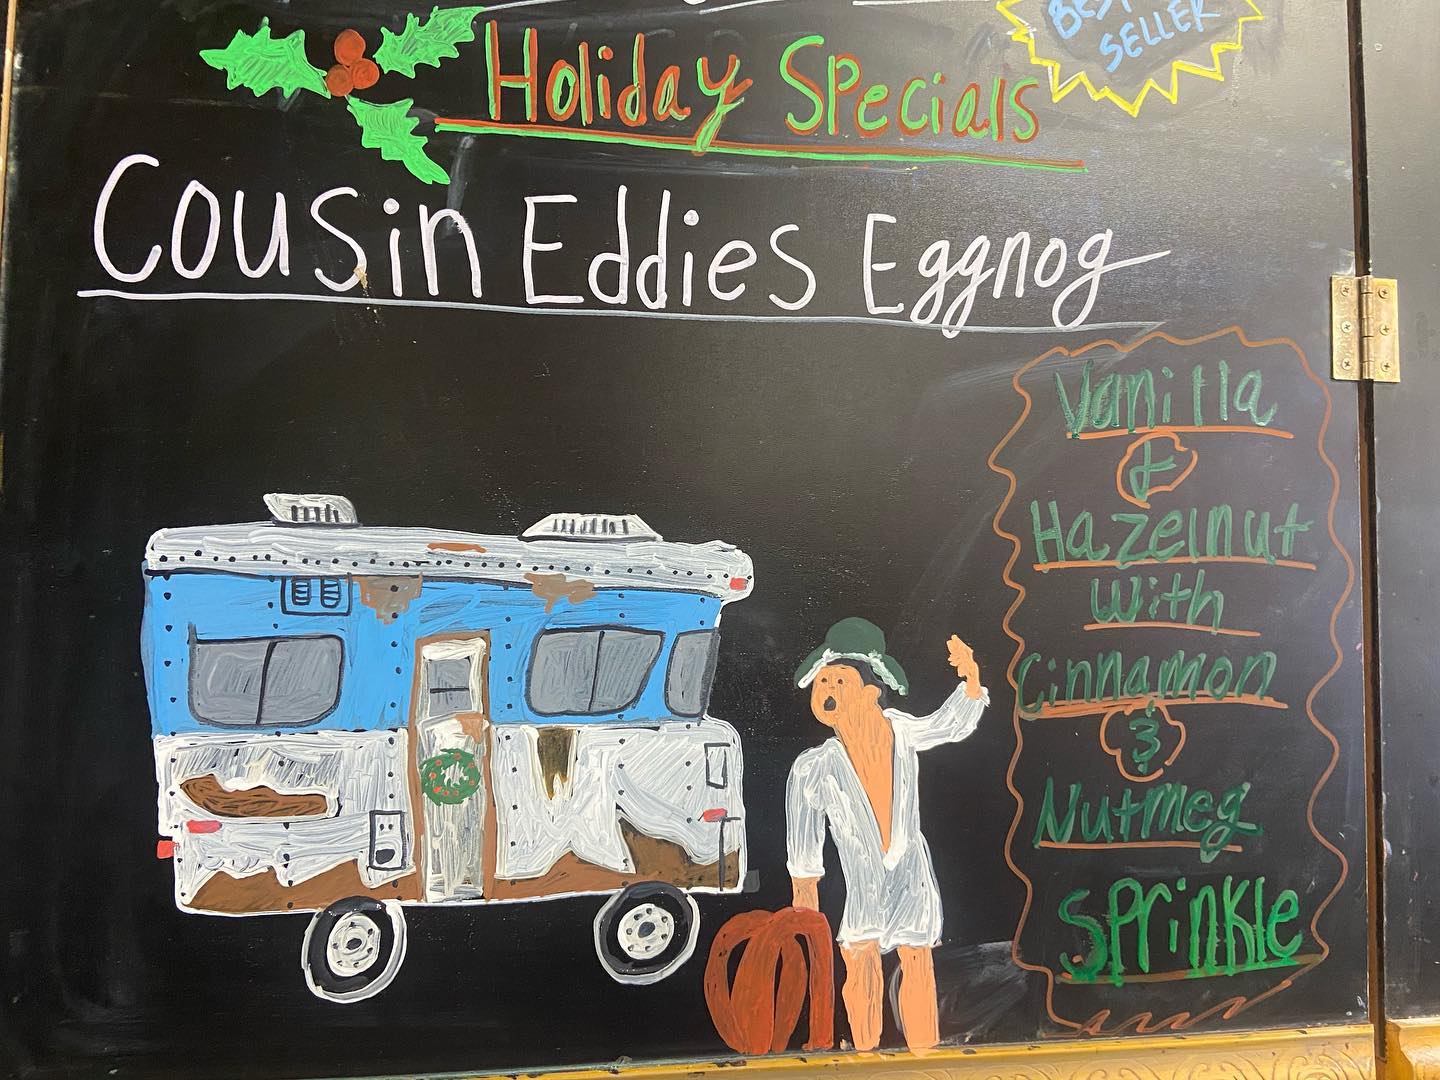 BEST
SELLER
Holiday Specials
Cousin Eddies Eggnog
Vanilla
&
Hazelnut
With
Cinnamon
&
Nutmeg
Sprinkle